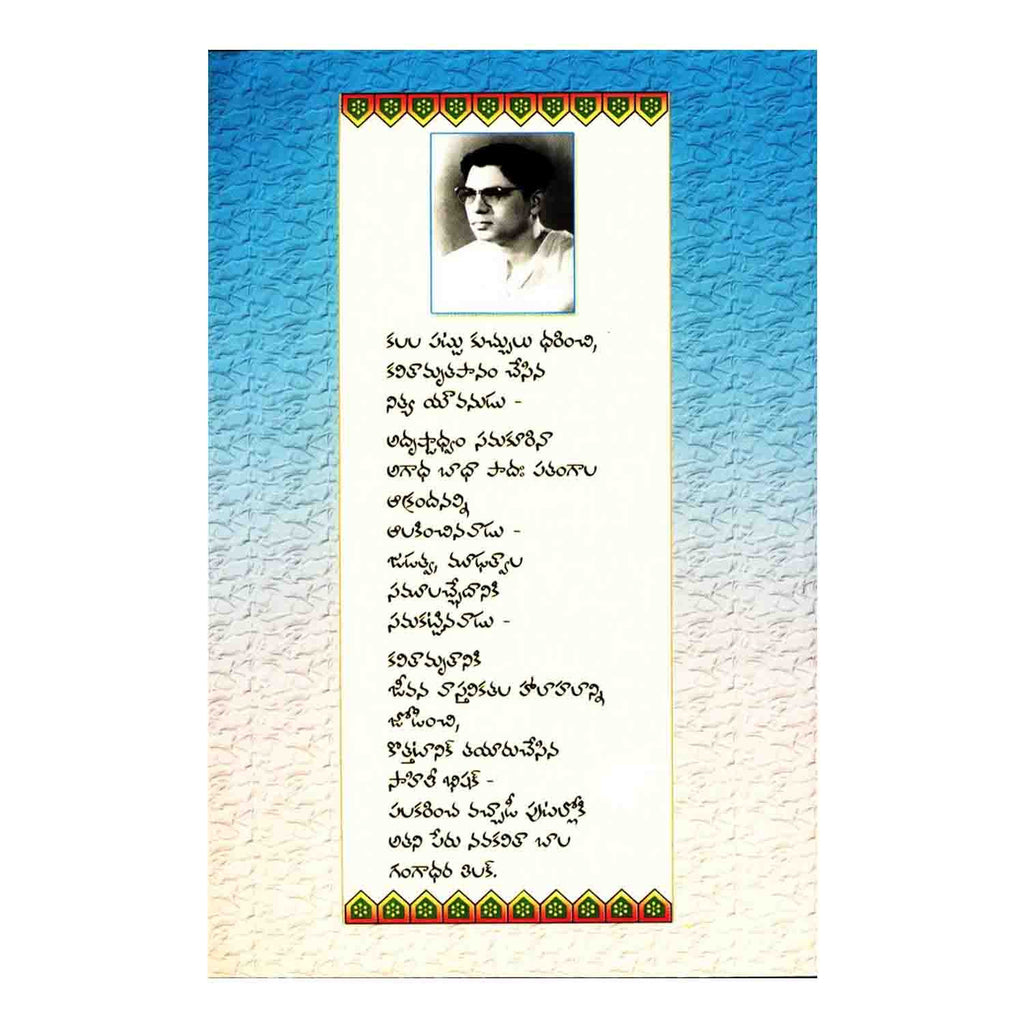 కలల పట్టు కుచ్చులు ధరించి,
కవితామృతపానం చేసిన
నిత్య యౌవనుడు -
అదృష్టాధ్వం సమకూరినా
అగాధ బాధా పాదః పతంగాల
ఆక్రందనన్ని
ఆలకించినవాడు -
జడత్వ, మూఢత్వాల
సమూలచ్ఛేదానికి
సమకట్టినవాడు -
కవితామృతానికి
జీవన వాస్తవికతల హాలాహలాన్ని
జోడించి,
కొత్తటానిక్ తయారుచేసిన
సాహితీ భిషక్ -
పలకరించ వచ్చాడీ పుటల్లోకి
అతని పేరు నవకవితా బాల
గంగాధర తిలక్.